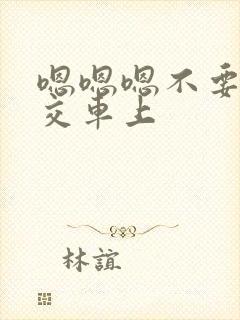 嗯嗯嗯不要
交车上
林誼